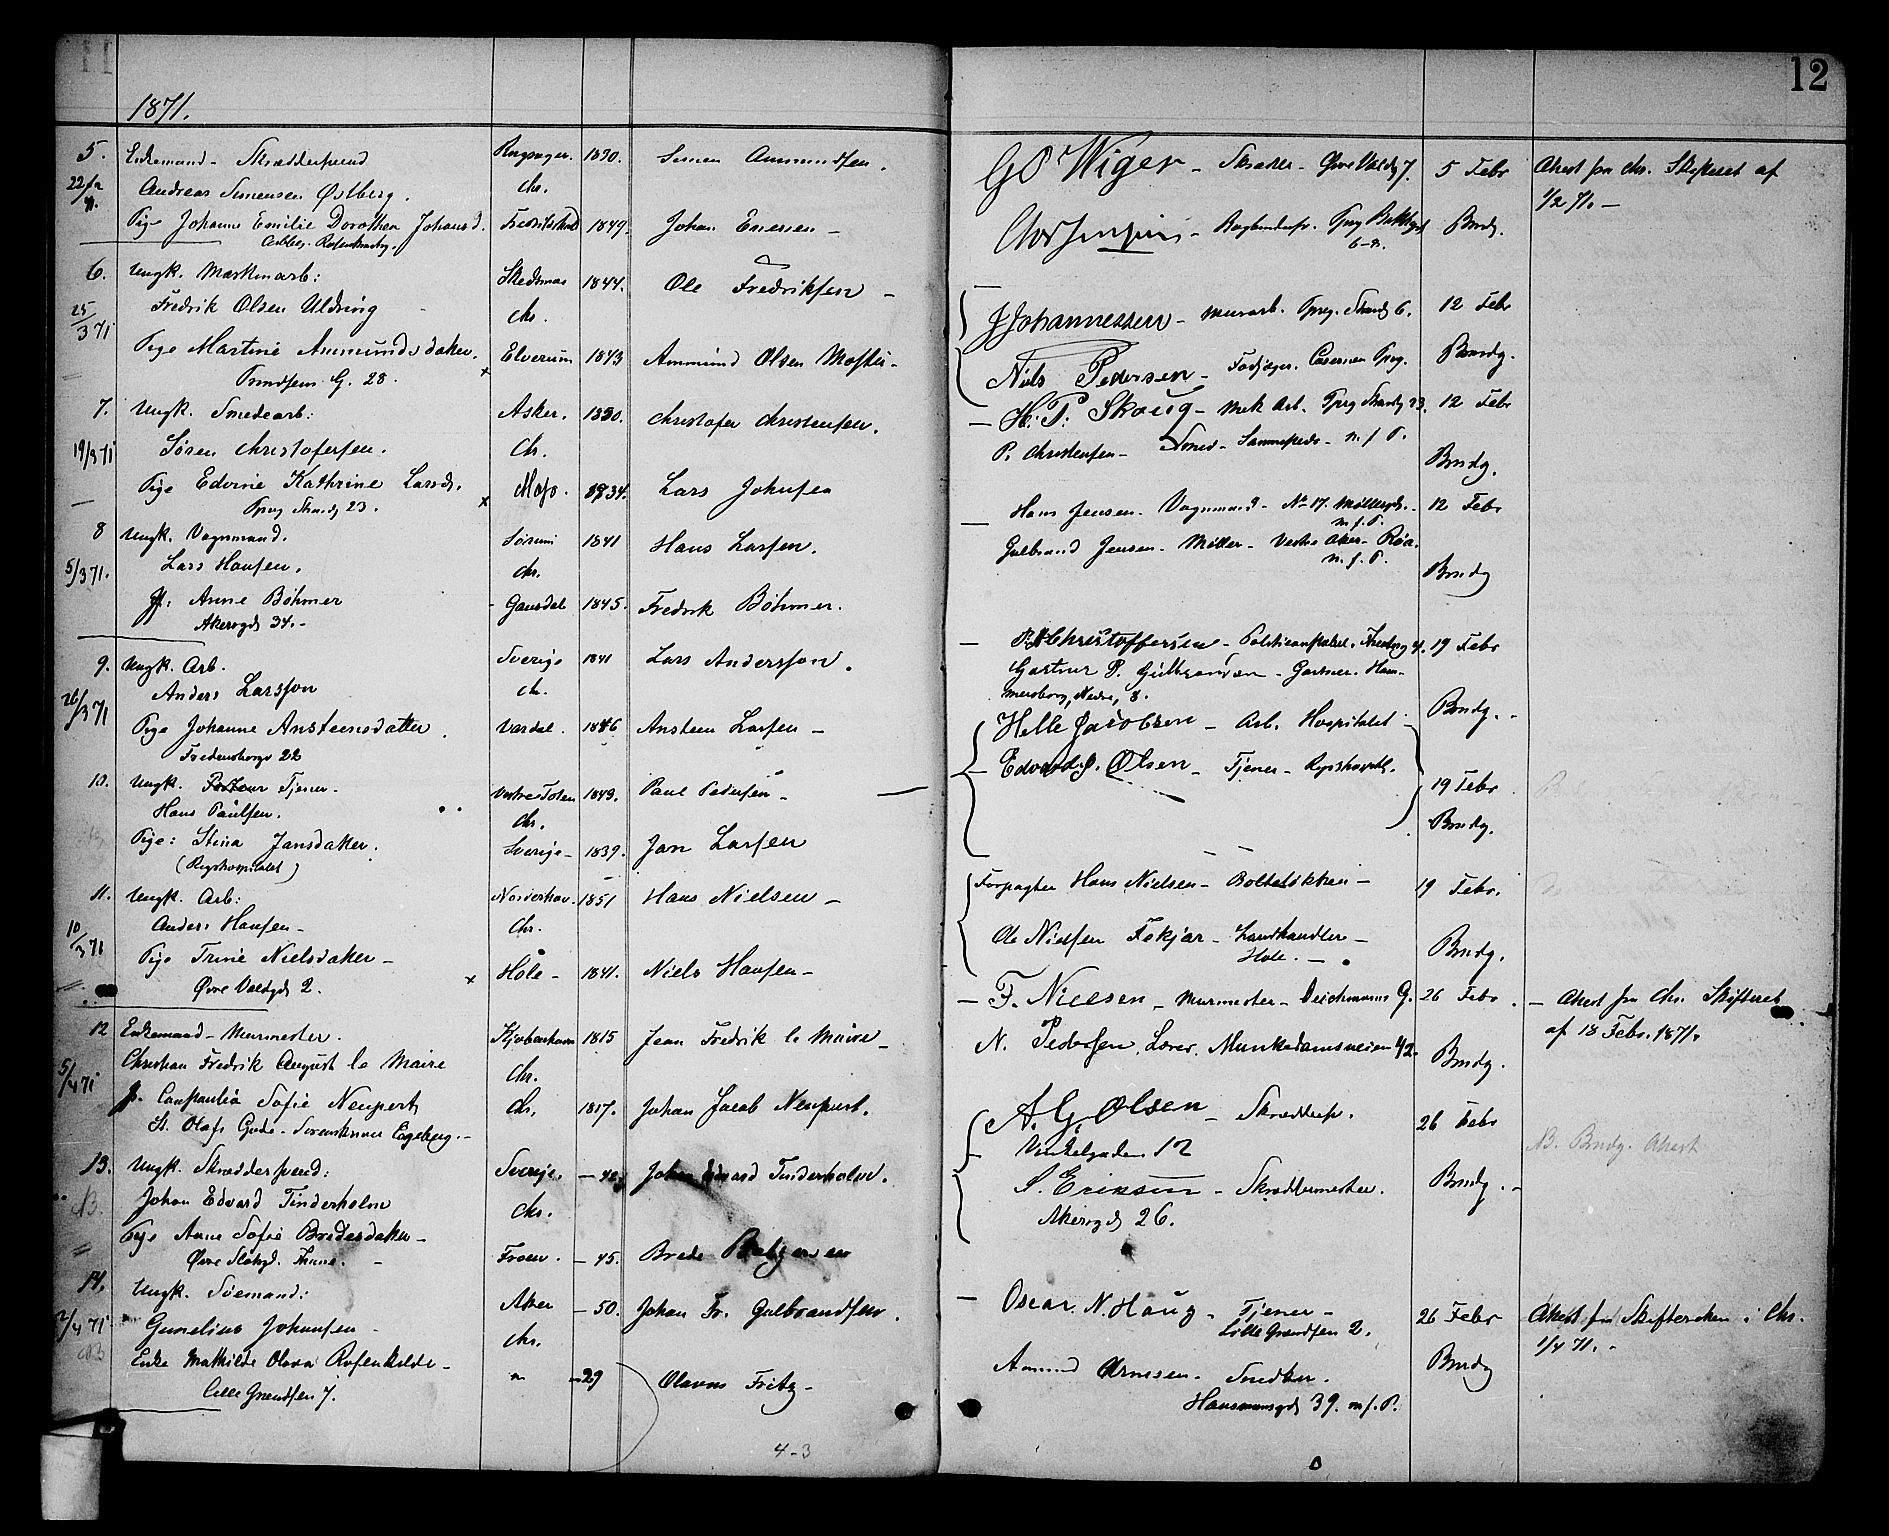 12
1871.
5. Enkemand - Skræddersvend Ringsager. 1830. Simen Ammundsen.
22/ Andreas Simensen Østberg. Chr.
Pige Johanne Emilie Dorothea Johansd. 1849. Johan
6. Ungk. Maskinarb: Skedsmo 1844. Ole Fredriksen -
25/3 71 Fredrik Olsen Chr.
Pige Martine Ammundsdatter. Elverum 1843 Ammund Olsen
G. 28.
7. Ungk. Smedearb: Asker. 1830. Christofer Christensen.
19/3 71 Søren Christofersen. Chr.
Pige Edvine Kathrine Larsd. Moss. 1834. Lars Johnsen
23.
8 Ungk. Vognmand. Sørum 1841 Hans Larsen.
5/3 71. Lars Hansen. Chr.
Jf. Anne Böhmer Gausdal 1845. Fredrik Böhmer.
Akersgd 34. -
9. Ungk. Arb. Sverige 1841 Lars Andersson.
26/3 71 Anders Larsson Ch.
Pige Johanne Ansteensdatter Vardal. 1846 Ansteen Larsen -
Fredensborgv 22
10. Ungk. Tjener. Vestre Toten 1843. Paul Pedersen -
Hans Paulsen. Chr.
Pige: Stina Jansdatter. Sverige - 1839. Jan Larsen
(Rigshospitalet)
11. Ungk. Arb: Norderhov. 1851 Hans Nielsen -
10/3 71 Anders Hansen - Chr.
Pige Trine Nielsdatter - Hole - 1841. Niels Hansen -
Øvre Voldgd 2.
12 Enkemand - Murmester. Kjøbenhavn 1815 Jean Fredrik le Maire -
5/4 71 Christian Fredrik August le Maire Chr.
Jf. Sofie Neupert Ch. 1817. Johan Jacob Neupert.
St. Olafs Gade - Egeberg. -
13. Ungk. Skræddersvend: Sverige. - 42. Johan Edvard Tinderholm.
Johan Edvard Tinderholm Chr.
Pige Anne Sofie Bredesdatter - Froen. - 45. Brede
Øvre Slotsgd.
14. Ungk. Sømand: Aker - 50. Johan Fr. Gulbrandsen.
2/4 71 Gunelius Johansen - Chr.
Enke Mathilde Olava Rosenkilde - " - 29 Olavus Fritz -
Lille Grændsen 7.
4-3
G O Wiger - Øvre Voldg 7. 5 Febr Attest fra Chr. Skifteret af
1/2 71. -
Bmdg.
J Johannessen - Murarb. 6. 12 Febr
Niels Pedersen - Fodjæger. Bmdg.
H. P. Skoug - Mek Arb. 23. 12 Febr
P. Christensen - Smed - Sammesteds - m. f. P. Bmdg.
Hans Jensen - Vognmand - No 17. Møllergd. - 12 Febr
m. f. P.
Gulbrand Jensen - Møller - Vestre Aker - Røa.
m. f. P. Bmdg
Christoffersen - 4. 19 Febr
Gartner P. - Gartner - Ham-
mersborg, Nedre, 8. Bmdg. -
Helle Jacobsen - Arb. Hospitalet
Edvard J. Olsen - Tjener - Rigshospitl. 19 Febr
Bmdg.
Forpagter Hans Nielsen - Bolteløkken - 19 Febr.
Ole Nielsen Fekjær - Landhandler - Bmdg.
Hole. -
F. Nielsen - Murmester - Deichmanns G. 26 Febr. - Attest fra Chr. Skifteret
af 18 Febr. 1871.
N. Pedersen, Lærer, Munkedamsveien 42. Bmdg.
A. G. Olsen - Skræddersv. 26 Febr
Vinkelgaden 12 NB. Bmdg. Attest
S. Eriksen - Skræddermester. Bmdg. -
Akersgd 26.
Oscar N. Haug - Tjener - 26 Febr Attest fra Skifteretten i Chr.
Lille Grændsen 2. 1/4 71. -
Amund Arnesen - Snedker. Bmdg
Hausmannsgd 39. m. f. P.